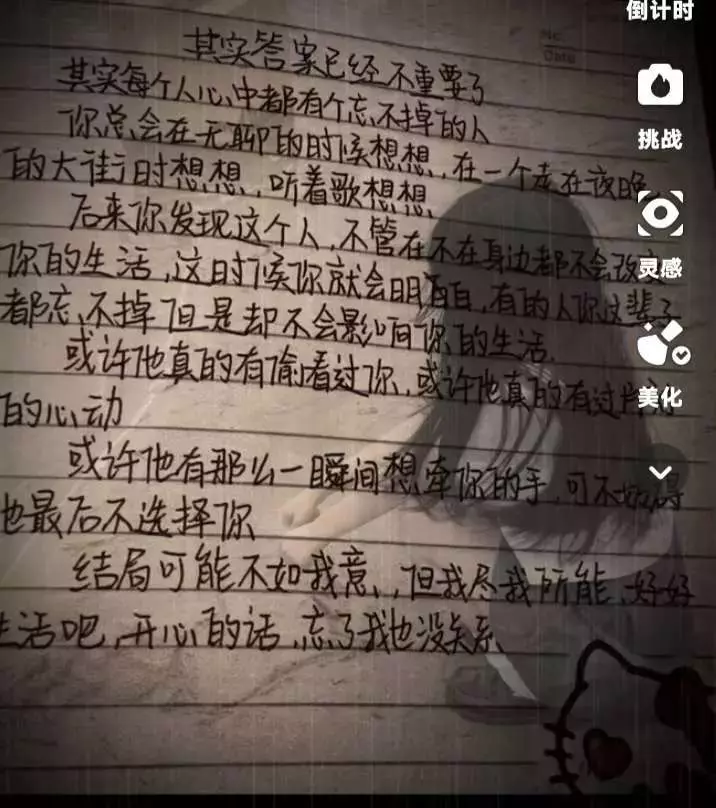 倒计时
No.
Date
挑战
灵感
美化
其实答案已经不重要了
其实每个人心中都有个忘不掉的人
你总会在无聊的时候想想,在一个走在夜晚
的大街时想想,听着歌想想,
后来你发现这个人,不管在不在身边都不会改变
你的生活,这时候你就会明白,有的人你这辈子
都忘不掉但是却不会影响你的生活.
或许他真的有偷看过你,或许他真的有过片刻
的心动
或许他有那么一瞬间想牵你的手,可不妨碍
他最后不选择你
结局可能不如我意,但我尽我所能,好好
生活吧,开心的话,忘了我也没关系